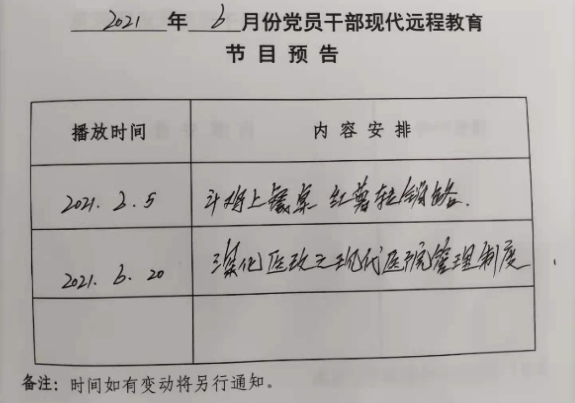 2021 年 6 月份党员干部现代远程教育
节目预告
播放时间 内容安排
2021. 2. 5 斗胆上餐桌 红薯轻松销路.
2021. 6. 20 深化医改之现代医院管理制度
备注：时间如有变动将另行通知。